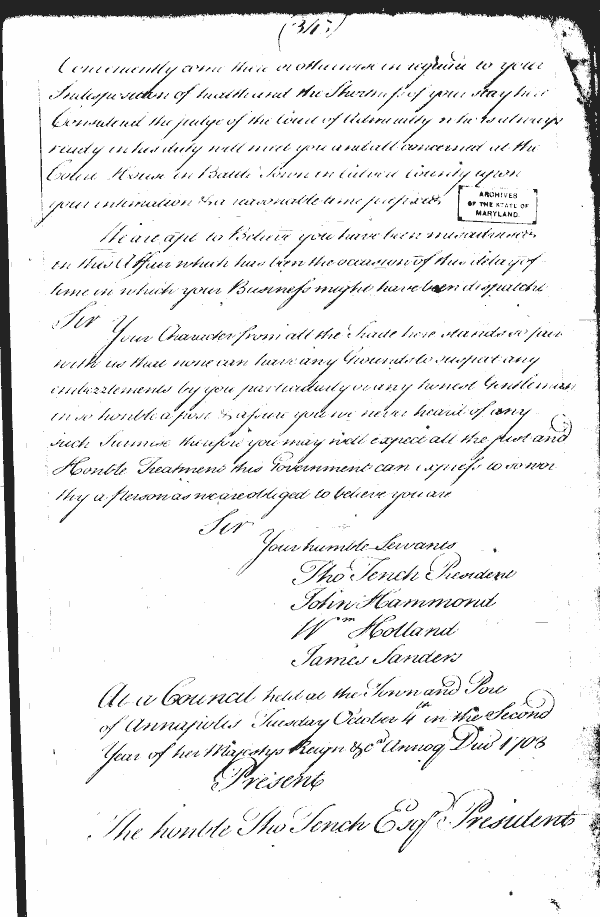 (347)
Conveniently come there or otherwise in regard to your
Indisposition of health and the Shortness of your stay here
Considered the judge of the Court of Admiralty who is always
ready in his duty will meet you and all concerned at the
Court House in Balto Town in County upon
your intimation & a reasonable time prefixed
ARCHIVES
OF THE STATE OF
MARYLAND
We are apt to Believe you have been misadvised
in this Affair which has been the occasion of this delay of
time in which your Business might have been dispatcht
Sir
Your Character from all the Trade here stands so fair
with us that none can have any Grounds to suspect any
embezzlements by you particularly or any honest Gentleman
in so honble a post & assure you we never heard of any
such Surmise therefore you may well expect all the just and
Honble Treatment this Government can express to so wor
thy a Person as we are obliged to believe you are
Sir
Your humble Servants
Tho Tench President
John Hammond
Wm Holland
James Sanders
At a Council held at the Town and Port
of Annapolis Tuesday October 4th in the Second
Year of her Majestys Reign &c Annoq Dni 1703
Present
The honble Tho Tench Esqr President